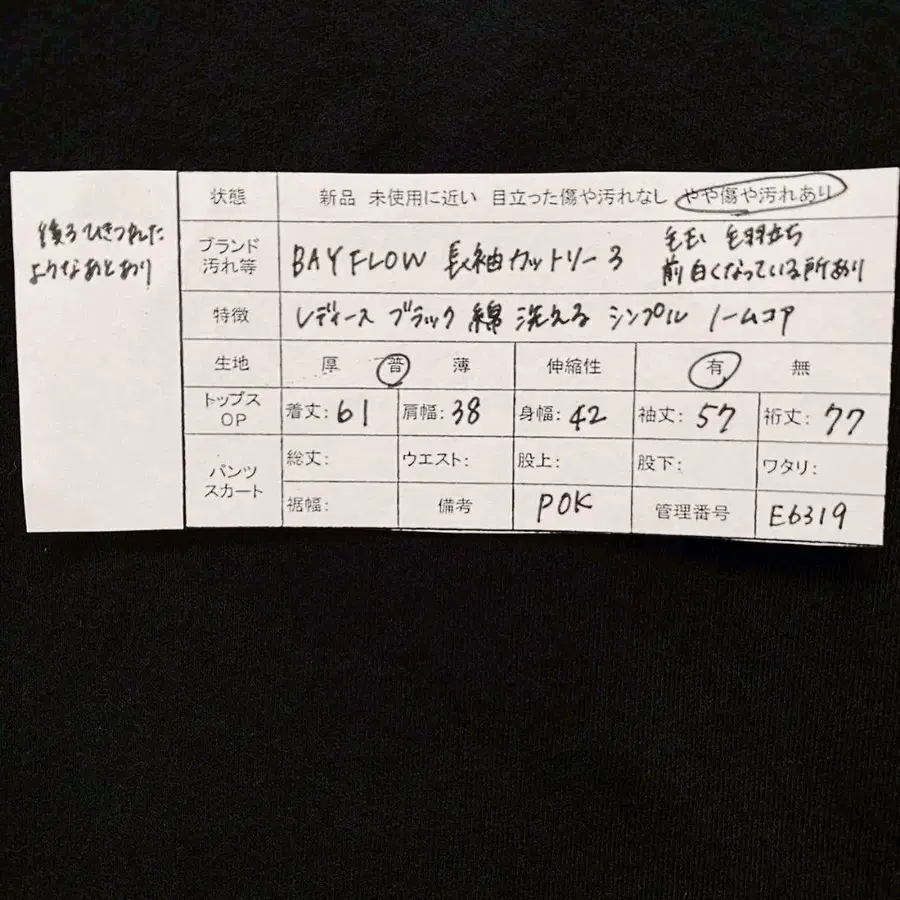 後ろひきつれた
ようなあとあり
状態 新品 未使用に近い 目立った傷や汚れなし やや傷や汚れあり
ブランド
汚れ等
BAYFLOW 長袖カットソー 3
毛玉 毛羽立ち
前 白くなっている所あり
特徴 レディース ブラック 綿 洗える シンプル ノームコア
生地 厚 普 薄 伸縮性 有 無
トップス
OP
着丈:61 肩幅:38 身幅:42 袖丈:57 裄丈:77
パンツ
スカート
総丈: ウエスト: 股上: 股下: ワタリ:
裾幅: 備考 POK 管理番号 E6319